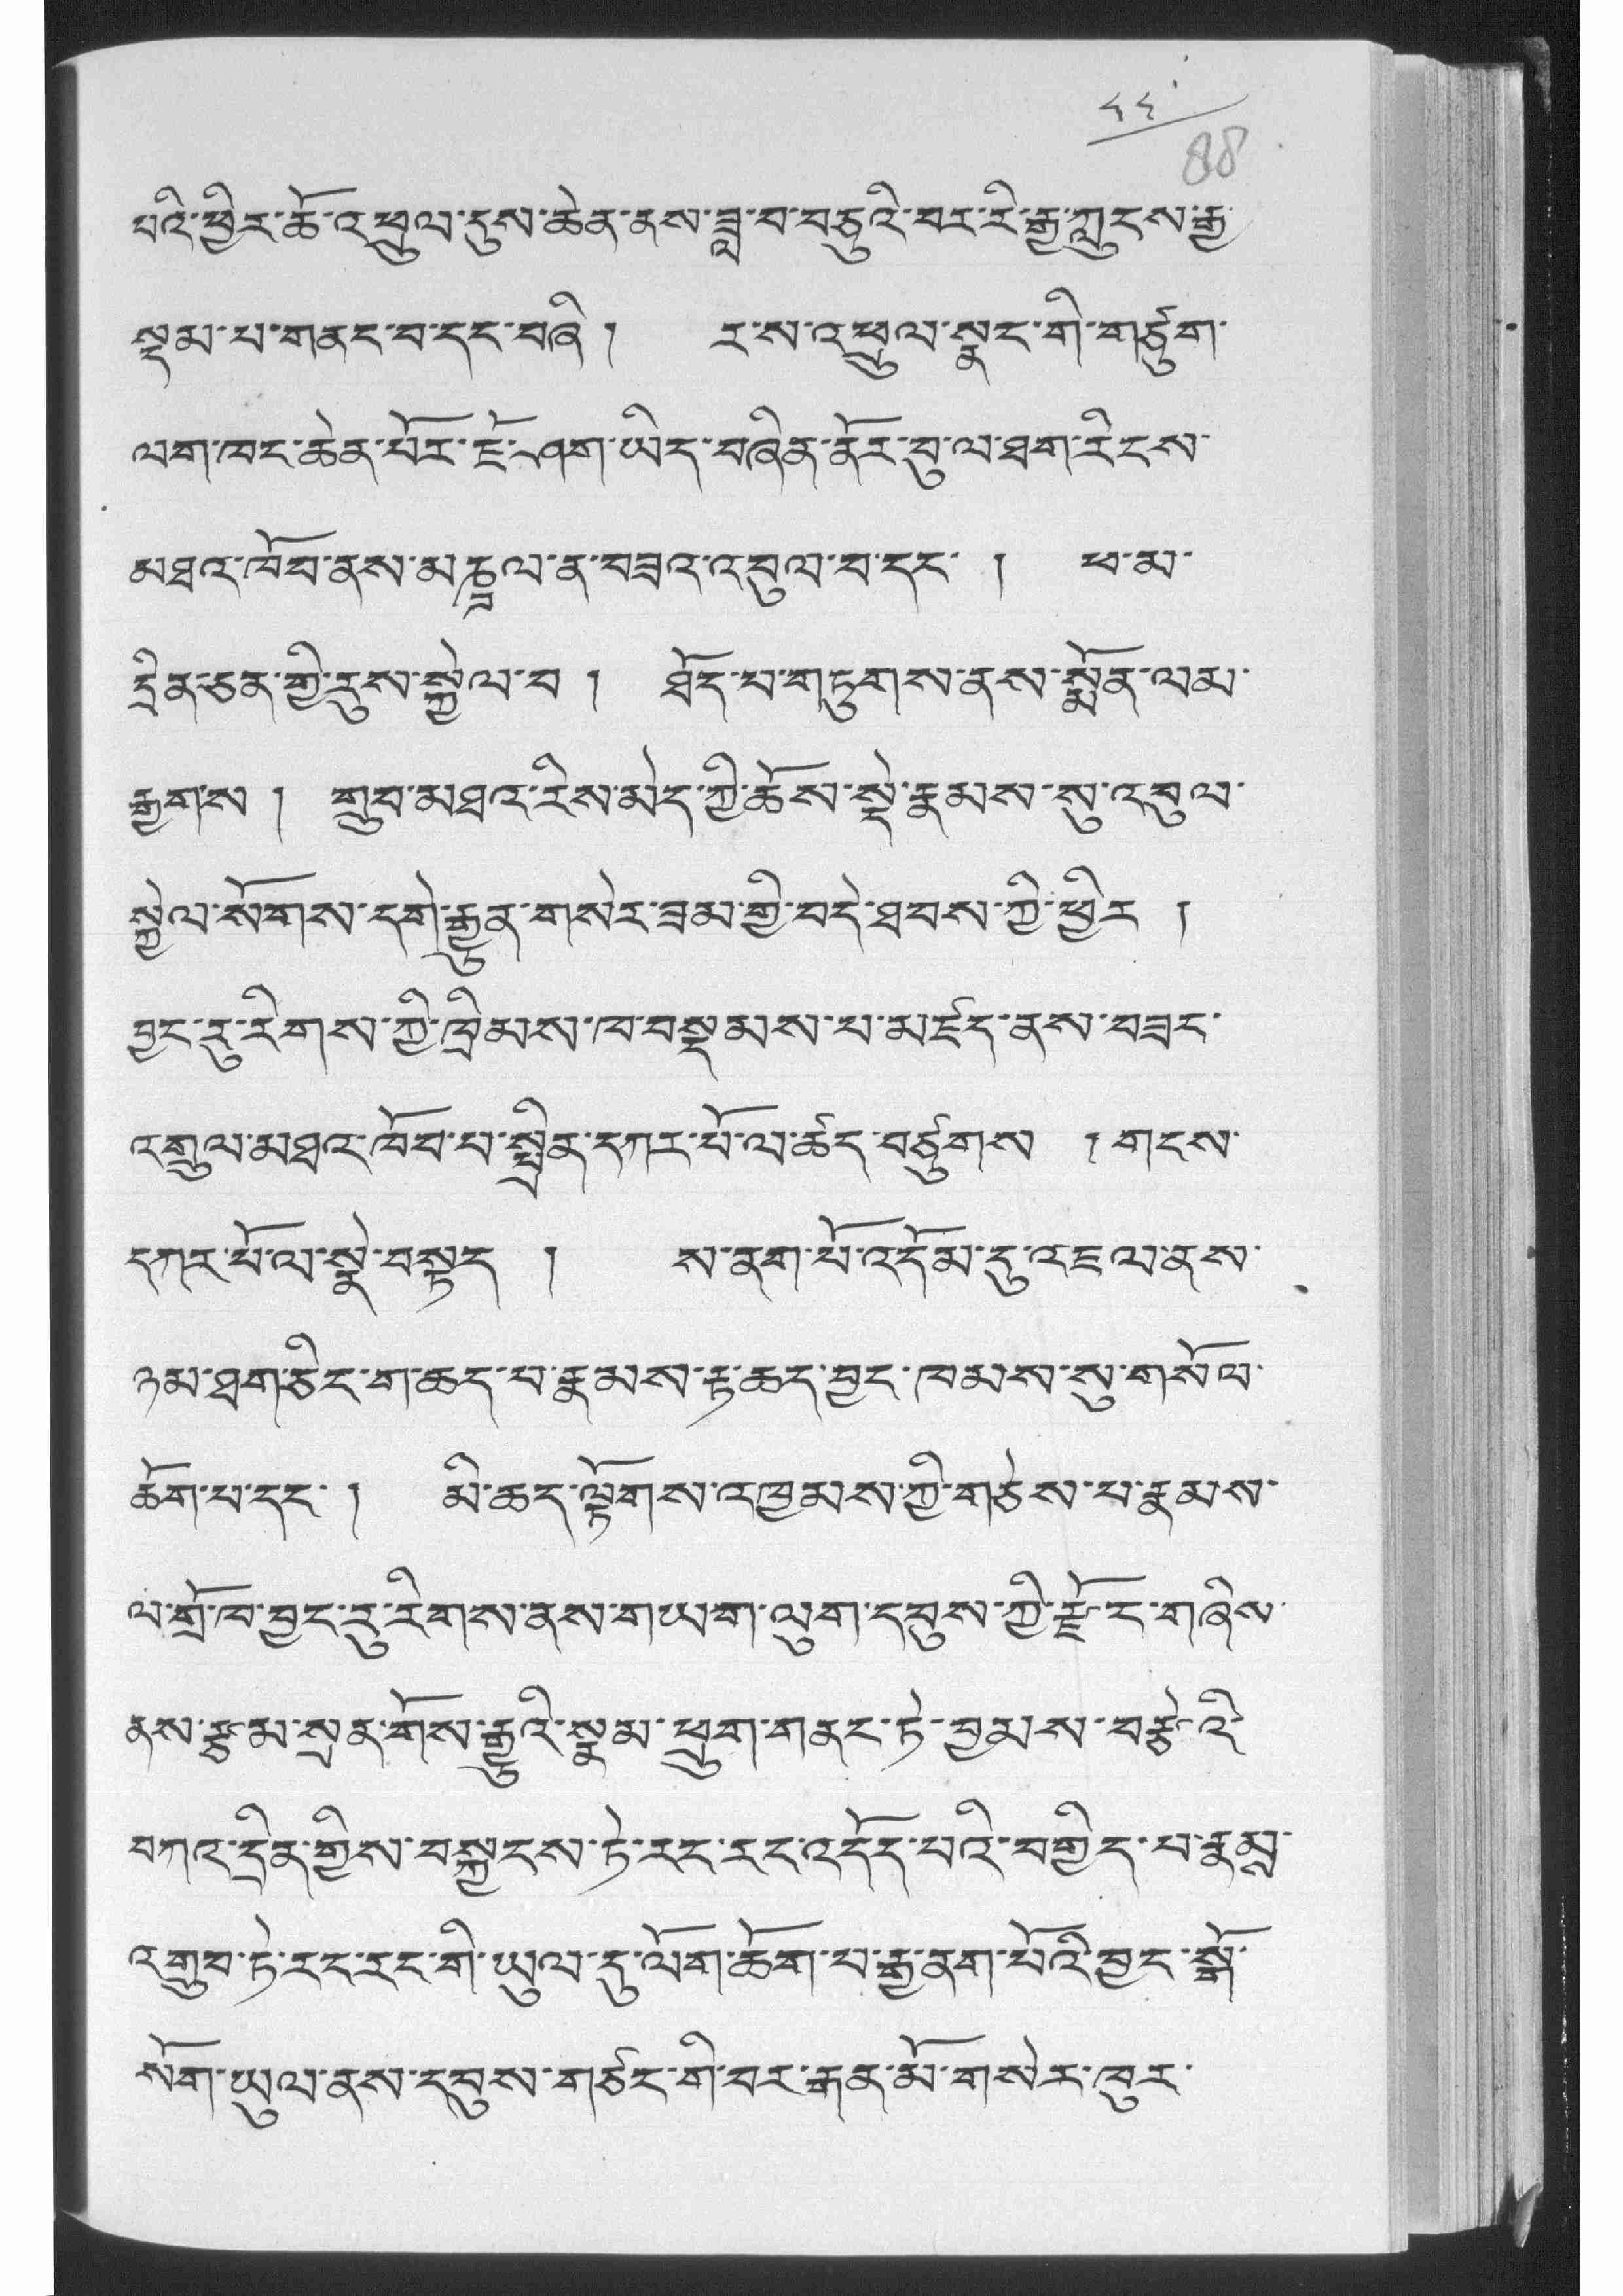 ༤༤
88
པའི་ཕྱིར་ཆོ་འཕྲུལ་དུས་ཆེན་ནས་ཟླ་བ་བཅུའི་བར་རི་རྒྱ་ཀླུངས་རྒྱ་
སྡམ་པ་གནང་བ་དང་བཞི། ར་ས་འཕྲུལ་སྣང་གི་གཙུག་
ལག་ཁང་ཆེན་པོར་ཇོ་ཤག་ཡིད་བཞིན་ནོར་བུ་ལ་ཐག་རིངས་
མཐའ་ཁོབ་ནས་མཎྜལ་ན་བཟའ་འབུལ་བ་དང་། ཕ་མ་
དྲིན་ཅན་གྱི་རུས་སྐྱེལ་བ། ཐོད་པ་གཏུགས་ནས་སྨོན་ལམ་
རྒྱགས། གྲུབ་མཐའ་རིས་མེད་ཀྱི་ཆོས་སྡེ་རྣམས་སུ་འབུལ་
སྐྱེལ་སོགས་དགེ་རྒྱུན་གསེར་ཟམ་གྱི་བདེ་ཐབས་ཀྱི་ཕྱིར།
བྱང་རུ་རིགས་ཀྱི་ཁྲིམས་ཁ་བསྡམས་པ་མཛད་ནས་བཟང་
འགྲུལ་མཐའ་ཁོབ་པ་སྤྲིན་དཀར་པོ་ལ་ཚད་བཙུགས །གངས་
དཀར་པོ་ལ་སྣེ་བསྟད། ས་ནག་པོ་འདོམ་དུ་འཇལ་ནས་
ཉམ་ཐག་ཅིང་ག་ཆད་པ་རྣམས་རྟ་ཆད་བྱང་ཁམས་སུ་གསོལ་
ཆོག་པ་དང་། མི་ཆད་ལྟོགས་འཁྱམས་ཀྱི་གཅེས་པ་རྣམས་
ལ་གྲོ་ཁ་བྱང་རུ་རིགས་ནས་གཡག་ལུག་དབུས་ཀྱི་རྫོང་གཞིས་
ནས་རྩམ་སྲན་གོས་རྒྱུའི་སྣམ་ཕྲུག་གནང་ཏེ་བྱམས་བརྩེའི་
བཀའ་དྲིན་གྱིས་བསྐྱངས་ཏེ་རང་རང་འདོད་པའི་བགྱིད་པ་རྣམྶ་
འགྲུབ་ཏེ་རང་རང་གི་ཡུལ་དུ་ལོག་ཆོག་པ་རྒྱ་ནག་པོའི་བྱང་སྒོ་
སོག་ཡུལ་ནས་དབུས་གཙང་གི་བར་རྒན་མོ་གསེར་ཁུར་